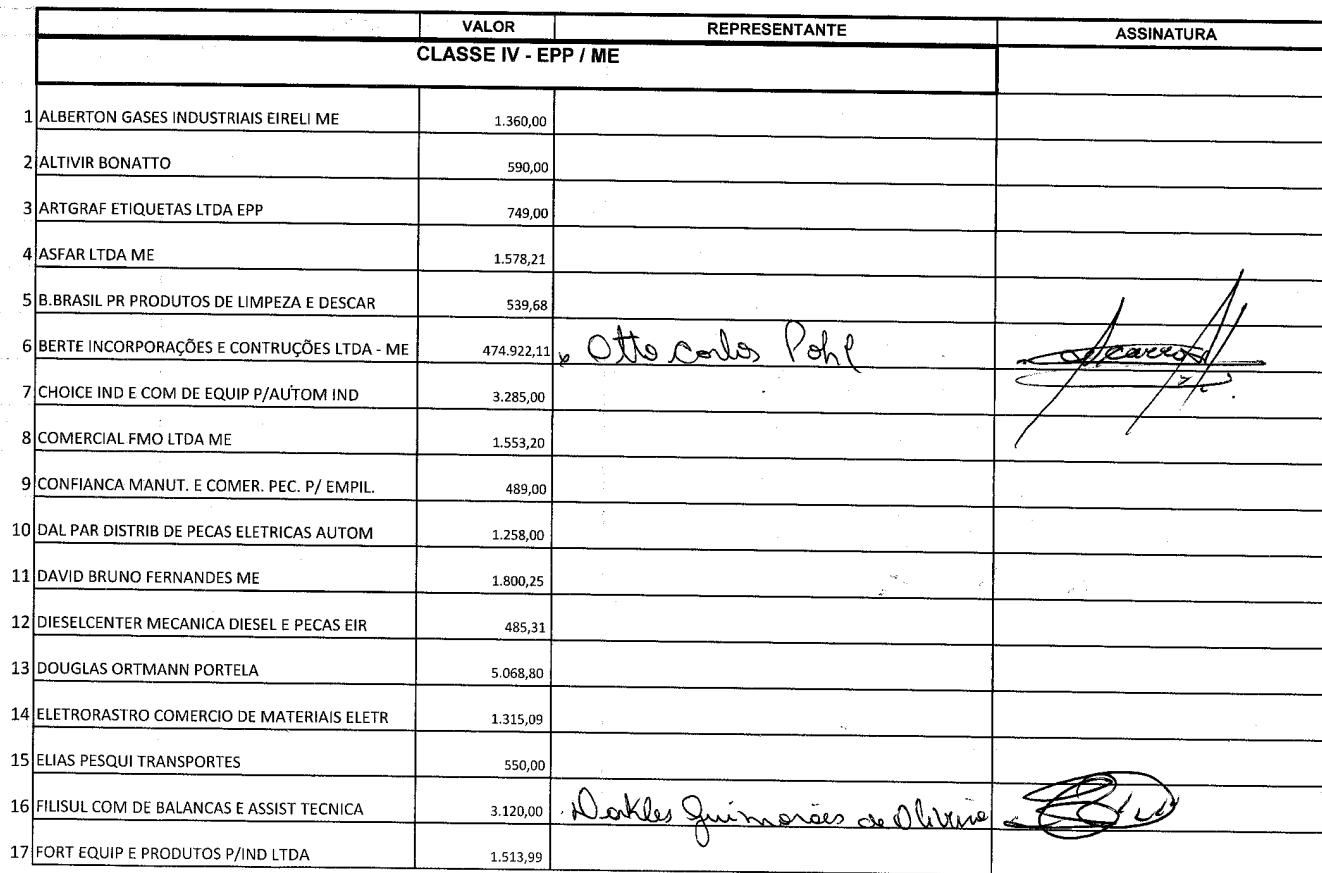 VALOR REPRESENTANTE ASSINATURA
CLASSE IV - EPP / ME
1 ALBERTON GASES INDUSTRIAIS EIRELI ME 1.360,00
2 ALTIVIR BONATTO 590,00
3 ARTGRAF ETIQUETAS LTDA EPP 749,00
4 ASFAR LTDA ME 1.578,21
5 B.BRASIL PR PRODUTOS DE LIMPEZA E DESCAR 539,68
6 BERTE INCORPORAÇÕES E CONTRUÇÕES LTDA - ME 474.922,11 x Otto Carlos Pohl
7 CHOICE IND E COM DE EQUIP P/AUTOM IND 3.285,00
8 COMERCIAL FMO LTDA ME 1.553,20
9 CONFIANCA MANUT. E COMER. PEC. P/ EMPIL. 489,00
10 DAL PAR DISTRIB DE PECAS ELETRICAS AUTOM 1.258,00
11 DAVID BRUNO FERNANDES ME 1.800,25
12 DIESELCENTER MECANICA DIESEL E PECAS EIR 485,31
13 DOUGLAS ORTMANN PORTELA 5.068,80
14 ELETRORASTRO COMERCIO DE MATERIAIS ELETR 1.315,09
15 ELIAS PESQUI TRANSPORTES 550,00
16 FILISUL COM DE BALANCAS E ASSIST TECNICA 3.120,00 Guimarães de Oliveira
17 FORT EQUIP E PRODUTOS P/IND LTDA 1.513,99